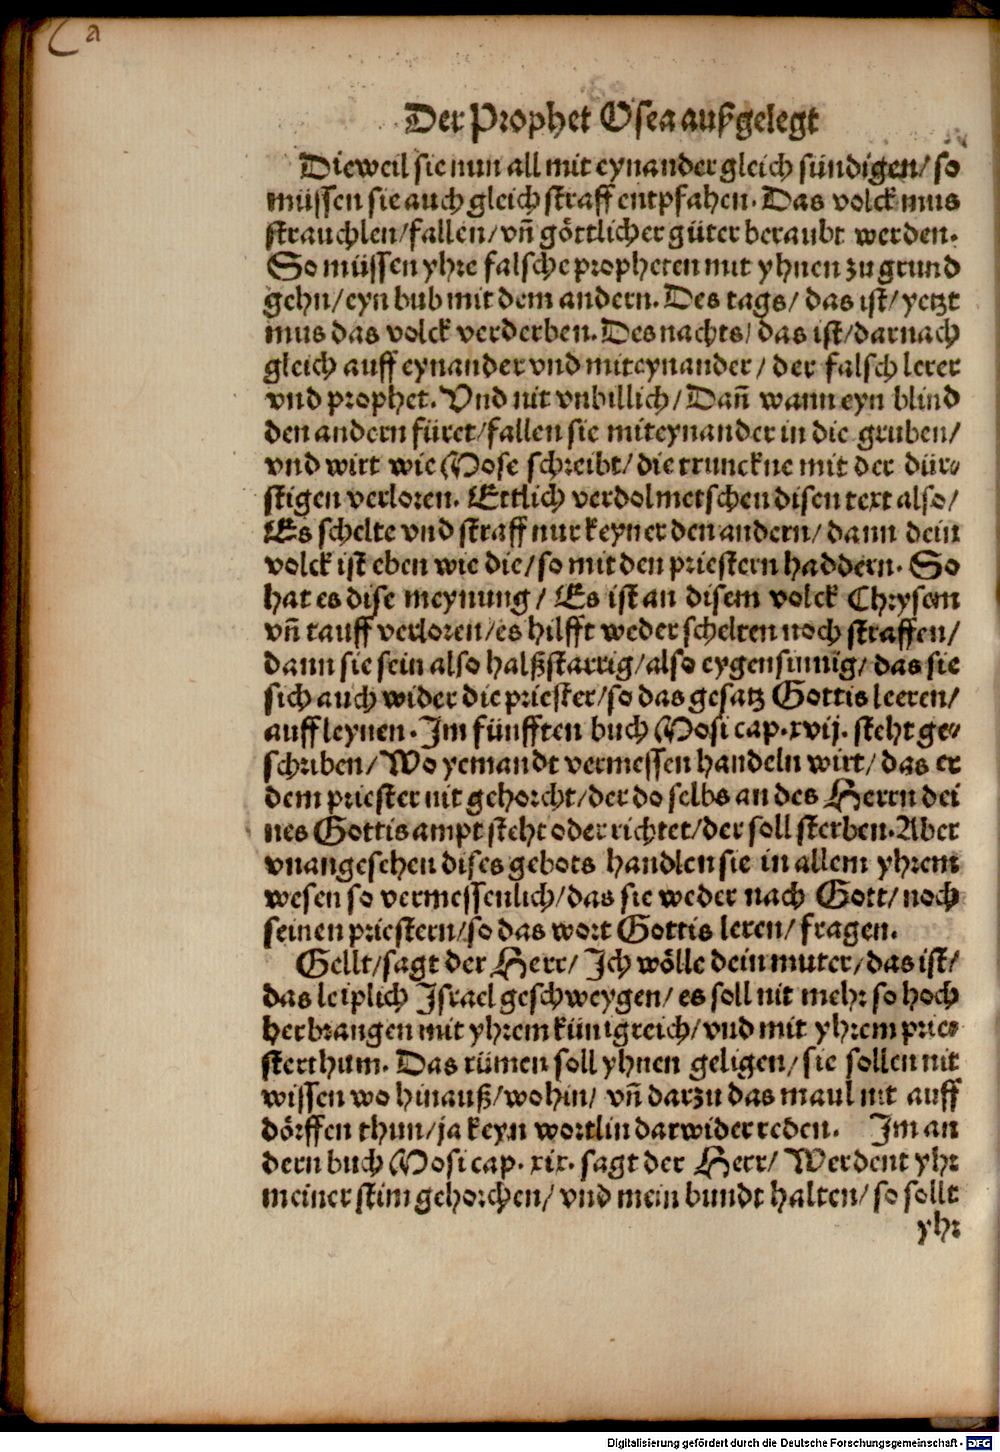 a
Der Prophet Osea außgelegt
Dieweil sie nun all mit eynander gleich sündigen/ so
müssen sie auch gleich straff entpfahen. Das volck mus
strauchlen/fallen/vñ göttlicher güter beraubt werden.
So müssen yhre falsche propheten mit yhnen zu grund
gehn/eyn bub mit dem andern. Des tags/ das ist/ yetzt
mus das volck verderben. Des nachts/ das ist/darnach
gleich auff eynander vnd miteynander/ der falsch lerer
vnd prophet. Vnd nit vnbillich/ Dañ wann eyn blind
den andern füret/fallen sie miteynander in die gruben/
vnd wirt wie Mose schreibt/ die trunckne mit der dür⸗
stigen verloren. Ettlich verdolmetschen disen text also/
Es schelte vnd straff nur keyner den andern/ dann dein
volck ist eben wie die/so mit den priestern haddern. So
hat es dise meynung/ Es ist an disem volck Chrysem
vñ tauff verloren/es hilfft weder schelten noch straffen/
dann sie sein also halßstarrig/also eygensinnig/ das sie
sich auch wider die priester/so das gesatz Gottis leeren/
auffleynen. Im fünfften buch Mosi cap. xvij. steht ge⸗
schriben/ Wo yemandt vermessen handeln wirt/ das er
dem priester nit gehorcht/der do selbs an des Herrn dei
nes Gottis ampt steht oder richtet/der soll sterben. Aber
vnangesehen dises gebots handlen sie in allem yhrem
wesen so vermessenlich/das sie weder nach Gott/ noch
seinen priestern/so das wort Gottis leren/ fragen.
Gellt/sagt der Herr/ Ich wölle dein muter/das ist/
das leiplich Israel geschweygen/ es soll nit mehr so hoch
herbrangen mit yhrem künigreich/vnd mit yhrem prie⸗
sterthum. Das rümen soll yhnen geligen/ sie sollen nit
wissen wo hinauß/wohin/ vñ darzu das maul nit auff
dörffen thun/ja keyn wortlin darwider reden. Im an
dern buch Mosi cap. xix. sagt der Herr/ Werdent yhr
meiner stim gehorchen/ vnd mein bundt halten/ so sollt
yhr
Digitalisierung gefördert durch die Deutsche Forschungsgemeinschaft - DFG